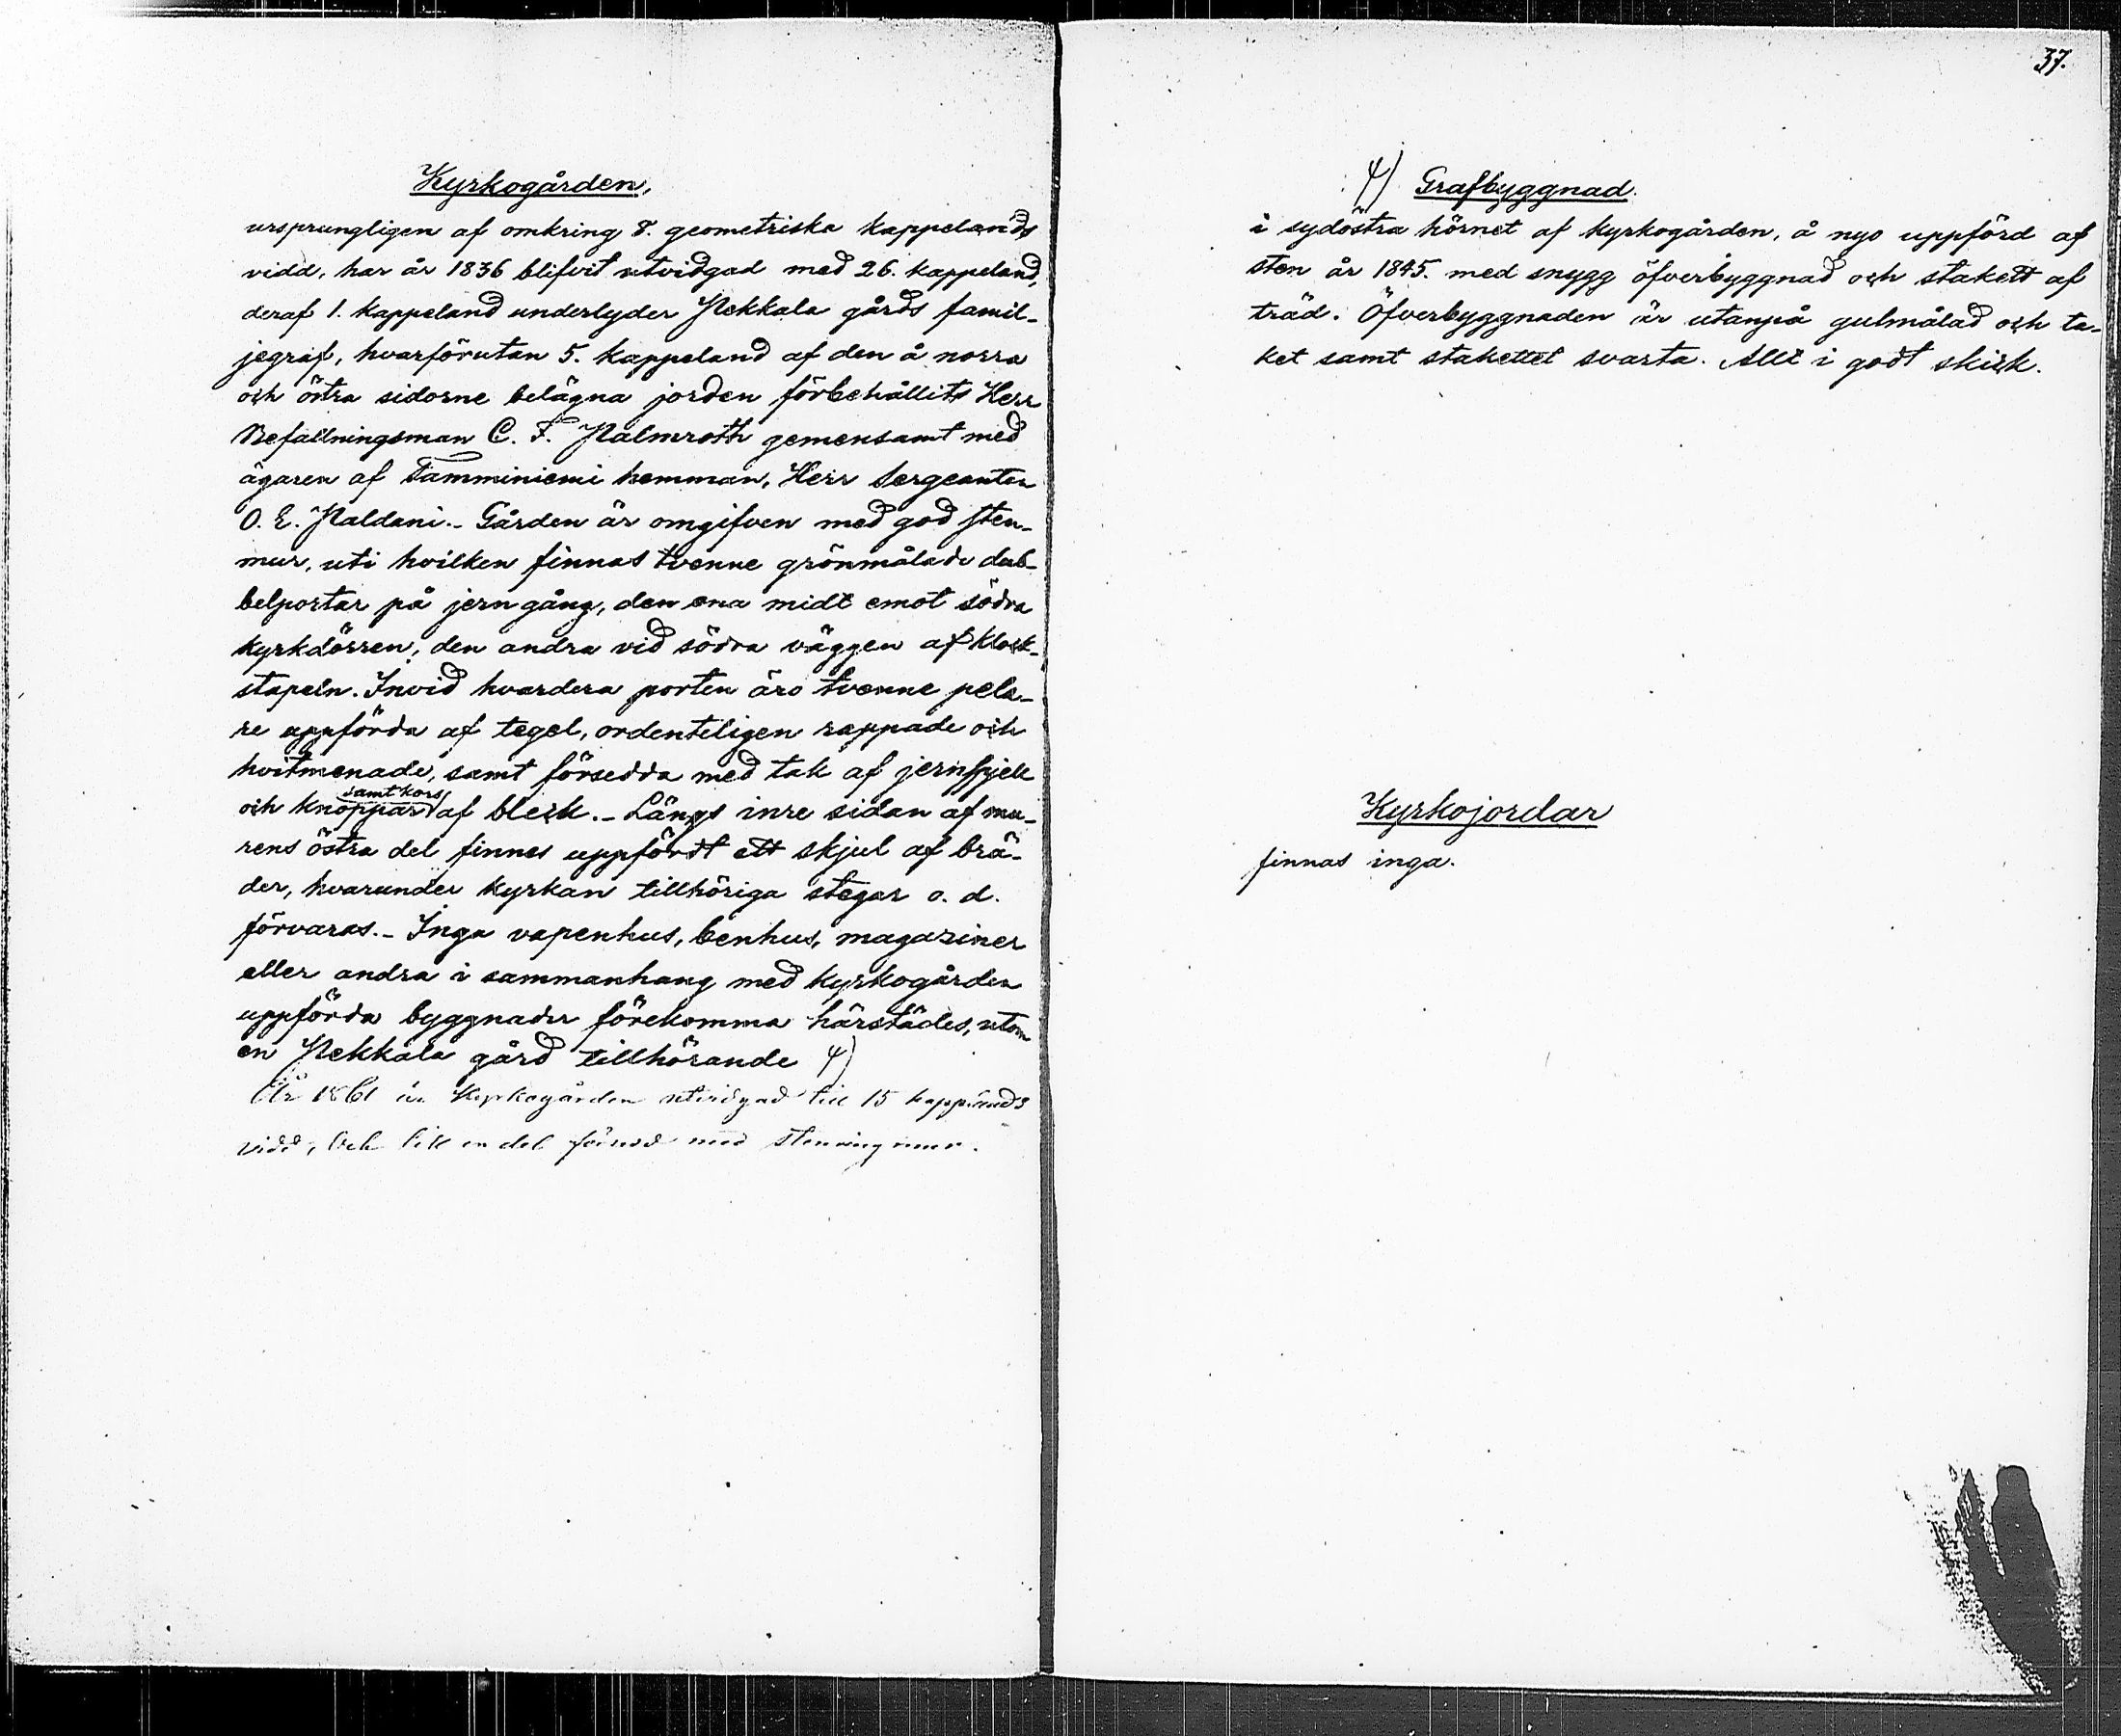 Kyrkogården,
ursprungligen af omkring 8. geometriska kappelands
vidd, har år 1836 blifvit utvidgad med 26. kappeland,
deraf 1. kappeland underlyder Pekkala gårds famil-
jegraf, hvarförutan 5. kappeland af den å norra
och östra sidorne belägna jorden förbehållits Herr
Befallningsman C. F. Palmroth gemensamt med
ägaren af Tamminiemi hemman, Herr Sergeanten
O. E. Paldani. - Gården är omgifven med god sten-
mur, uti hvilken finnas tvenne grönmålade dub-
belportar på jerngång, den ena midt emot södra
kyrkdörren, den andra vid södra väggen af klock-
stapeln. Invid hvardera porten äro tvenne pela-
re uppförda af tegel, ordenteligen rappade och
hvitmenade, samt försedda med tak af jernspjell
samt kors
och knoppar af bleck. - Längs inre sidan af mu-
rens östra del finnes uppfördt ett skjul af brä-
der, hvarunder kyrkan tillhöriga stegar o. d.
förvaras. - Inga vapenhus, benhus, magaziner
eller andra i sammanhang med kyrkogården
uppförda byggnader förekomma härstädes, utom
en Pekkala gård tillhörande 4)
År 1861 är Kyrkogården utvidgad till 15 kapplands
vidd, och till en del med mur.
37.
4) Grafbyggnad.
i sydöstra hörnet af kyrkogården, å nyo uppförd af
sten år 1845. med snygg öfverbyggnad och stakett af
träd. Öfverbyggnaden är utanpå gulmålad och ta-
ket samt stakettet svarta. Allt i godt skick.
Kyrkojordar
finnas inga.